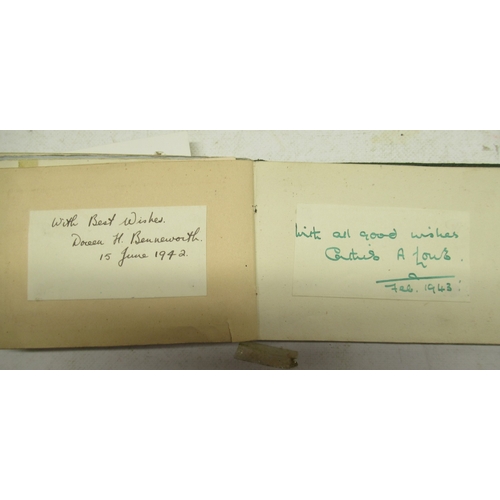 With Best Wishes.
Doreen H. Benneworth.
15 June 1942.
With all good wishes
A
Feb. 1943.